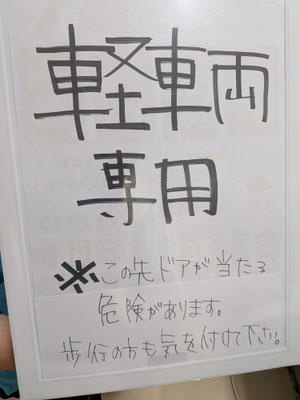 軽車両
専用
※この先ドアが当たる
危険があります。
歩行の方も気を付けて下さい!